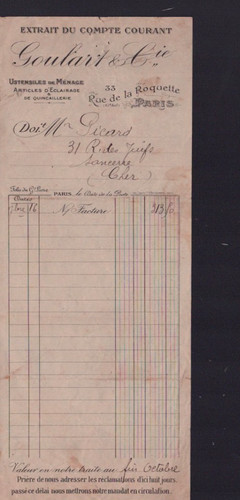 EXTRAIT DU COMPTE COURANT
Goulart & Cie
USTENSILES DE MÉNAGE
ARTICLES D'ÉCLAIRAGE
& DE QUINCAILLERIE
33
Rue de la Roquette
PARIS
Doit Mr Picard
31 R. des Juifs
Sancerre
(Cher)
PARIS, le Date de la Poste
16 N/ Facture 213
Valeur en notre traite au fin Octobre
Prière de nous adresser les réclamations d'ici huit jours,
passé ce délai nous mettrons notre mandat en circulation.